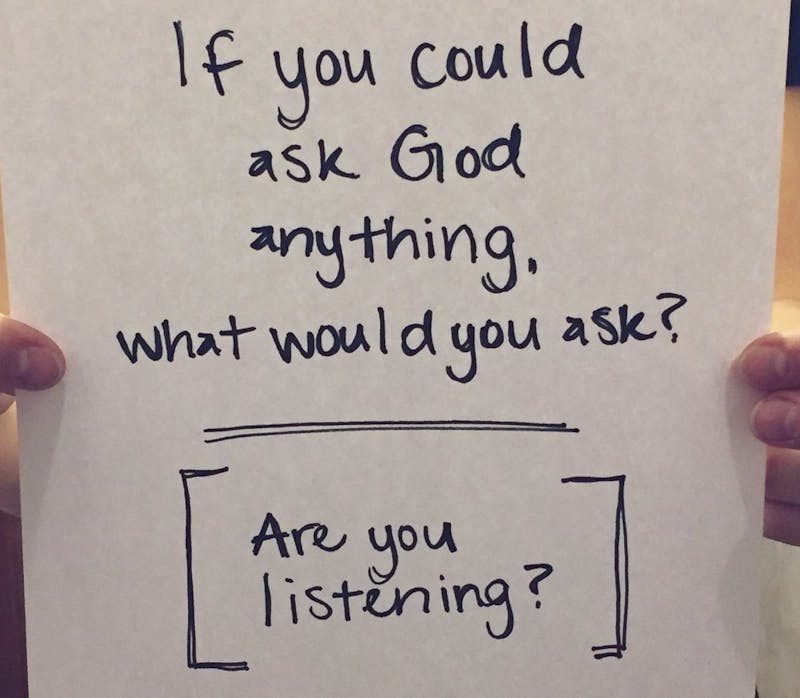 If you could
ask God
anything,
what would you ask?
Are you
listening?